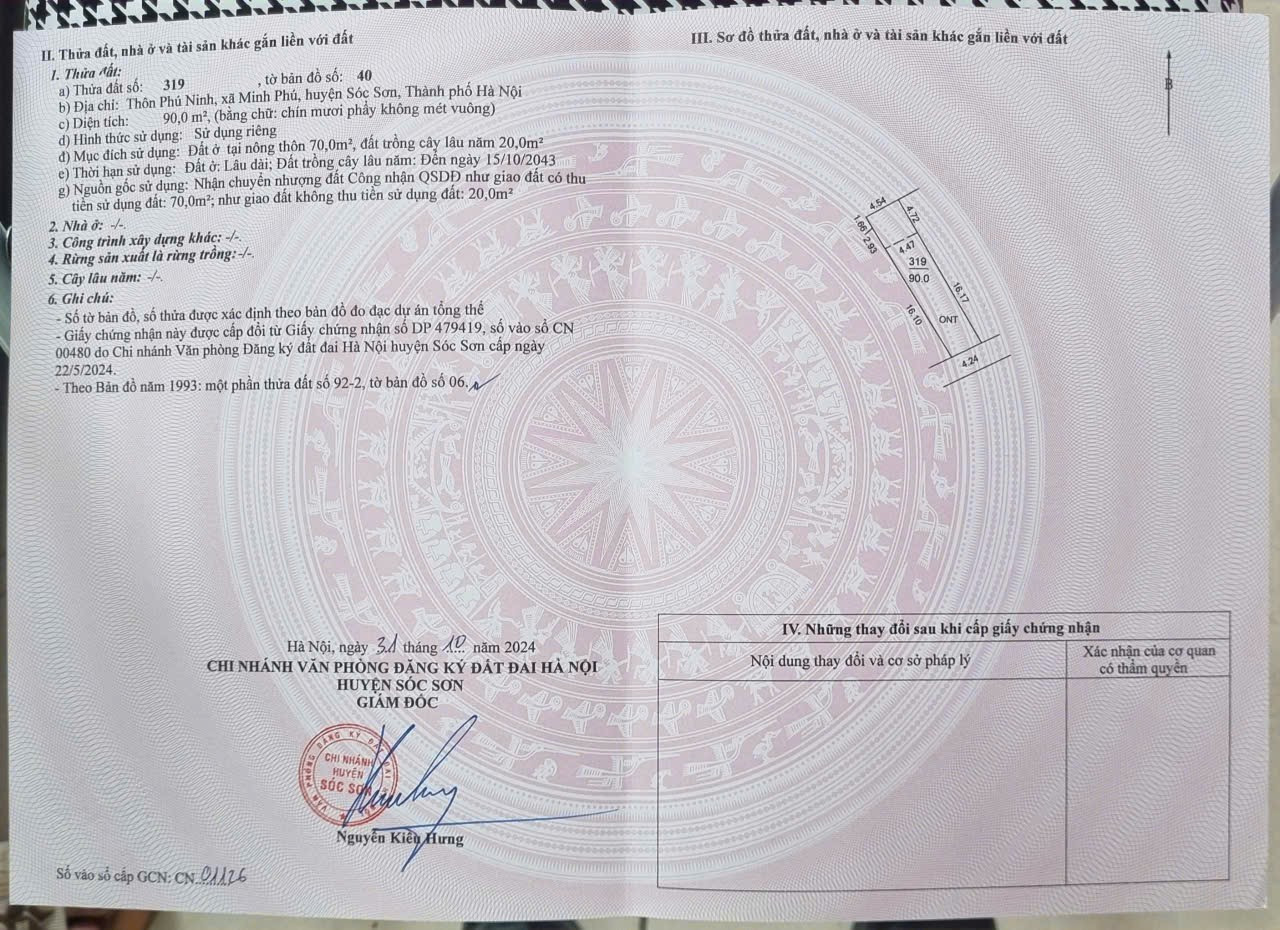 II. Thửa đất, nhà ở và tài sản khác gắn liền với đất
1. Thửa đất:
a) Thửa đất số: 319 , tờ bản đồ số: 40
b) Địa chỉ: Thôn Phú Ninh, xã Minh Phú, huyện Sóc Sơn, Thành phố Hà Nội
c) Diện tích: 90,0 m², (bằng chữ: chín mươi phẩy không mét vuông)
d) Hình thức sử dụng: Sử dụng riêng
đ) Mục đích sử dụng: Đất ở tại nông thôn 70,0m², đất trồng cây lâu năm 20,0m²
e) Thời hạn sử dụng: Đất ở: Lâu dài; Đất trồng cây lâu năm: Đến ngày 15/10/2043
g) Nguồn gốc sử dụng: Nhận chuyển nhượng đất Công nhận QSDĐ như giao đất có thu
tiền sử dụng đất: 70,0m²; như giao đất không thu tiền sử dụng đất: 20,0m²
2. Nhà ở: -/-.
3. Công trình xây dựng khác: -/-.
4. Rừng sản xuất là rừng trồng:-/-.
5. Cây lâu năm: -/-.
6. Ghi chú:
- Số tờ bản đồ, số thửa được xác định theo bản đồ đo đạc dự án tổng thể
- Giấy chứng nhận này được cấp đổi từ Giấy chứng nhận số DP 479419, số vào sổ CN
00480 do Chi nhánh Văn phòng Đăng ký đất đai Hà Nội huyện Sóc Sơn cấp ngày
22/5/2024.
- Theo Bản đồ năm 1993: một phần thửa đất số 92-2, tờ bản đồ số 06.
Hà Nội, ngày 31 tháng 10 năm 2024
CHI NHÁNH VĂN PHÒNG ĐĂNG KÝ ĐẤT ĐAI HÀ NỘI
HUYỆN SÓC SƠN
GIÁM ĐỐC
VĂN PHÒNG ĐĂNG KÝ ĐẤT ĐAI
CHI NHÁNH
HUYỆN
SÓC SƠN
Nguyễn Kiều Hưng
Số vào sổ cấp GCN: CN 01126
III. Sơ đồ thửa đất, nhà ở và tài sản khác gắn liền với đất
B
4.54
4.72
1.66
2.93
4.47
319
90.0
16.17
16.10
ONT
4.24
IV. Những thay đổi sau khi cấp giấy chứng nhận
Nội dung thay đổi và cơ sở pháp lý
Xác nhận của cơ quan
có thẩm quyền